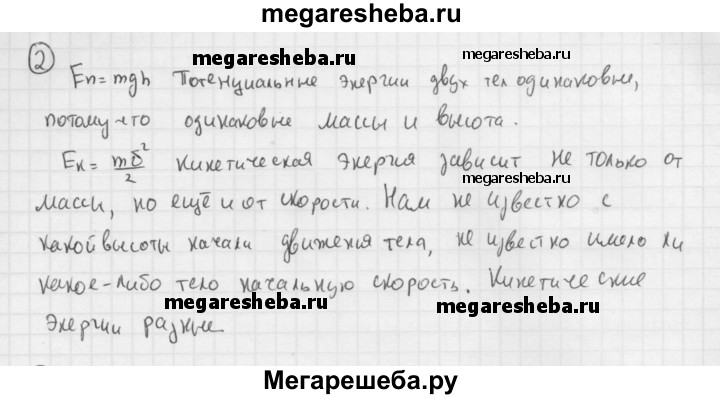 megaresheba.ru
2
Eп = mgh Потенциальные энергии двух тел одинаковые,
megaresheba.ru megaresheba.ru
потому что одинаковые массы и высота.
Eк = mϑ²/2 Кинетическая энергия зависит не только от
megaresheba.ru
массы, но ещё и от скорости. Нам не известно с
какой высоты начали движения тела, не известно имело ли
какое-либо тело начальную скорость. Кинетические
megaresheba.ru megaresheba.ru
энергии разные.
Мегарешеба.ру